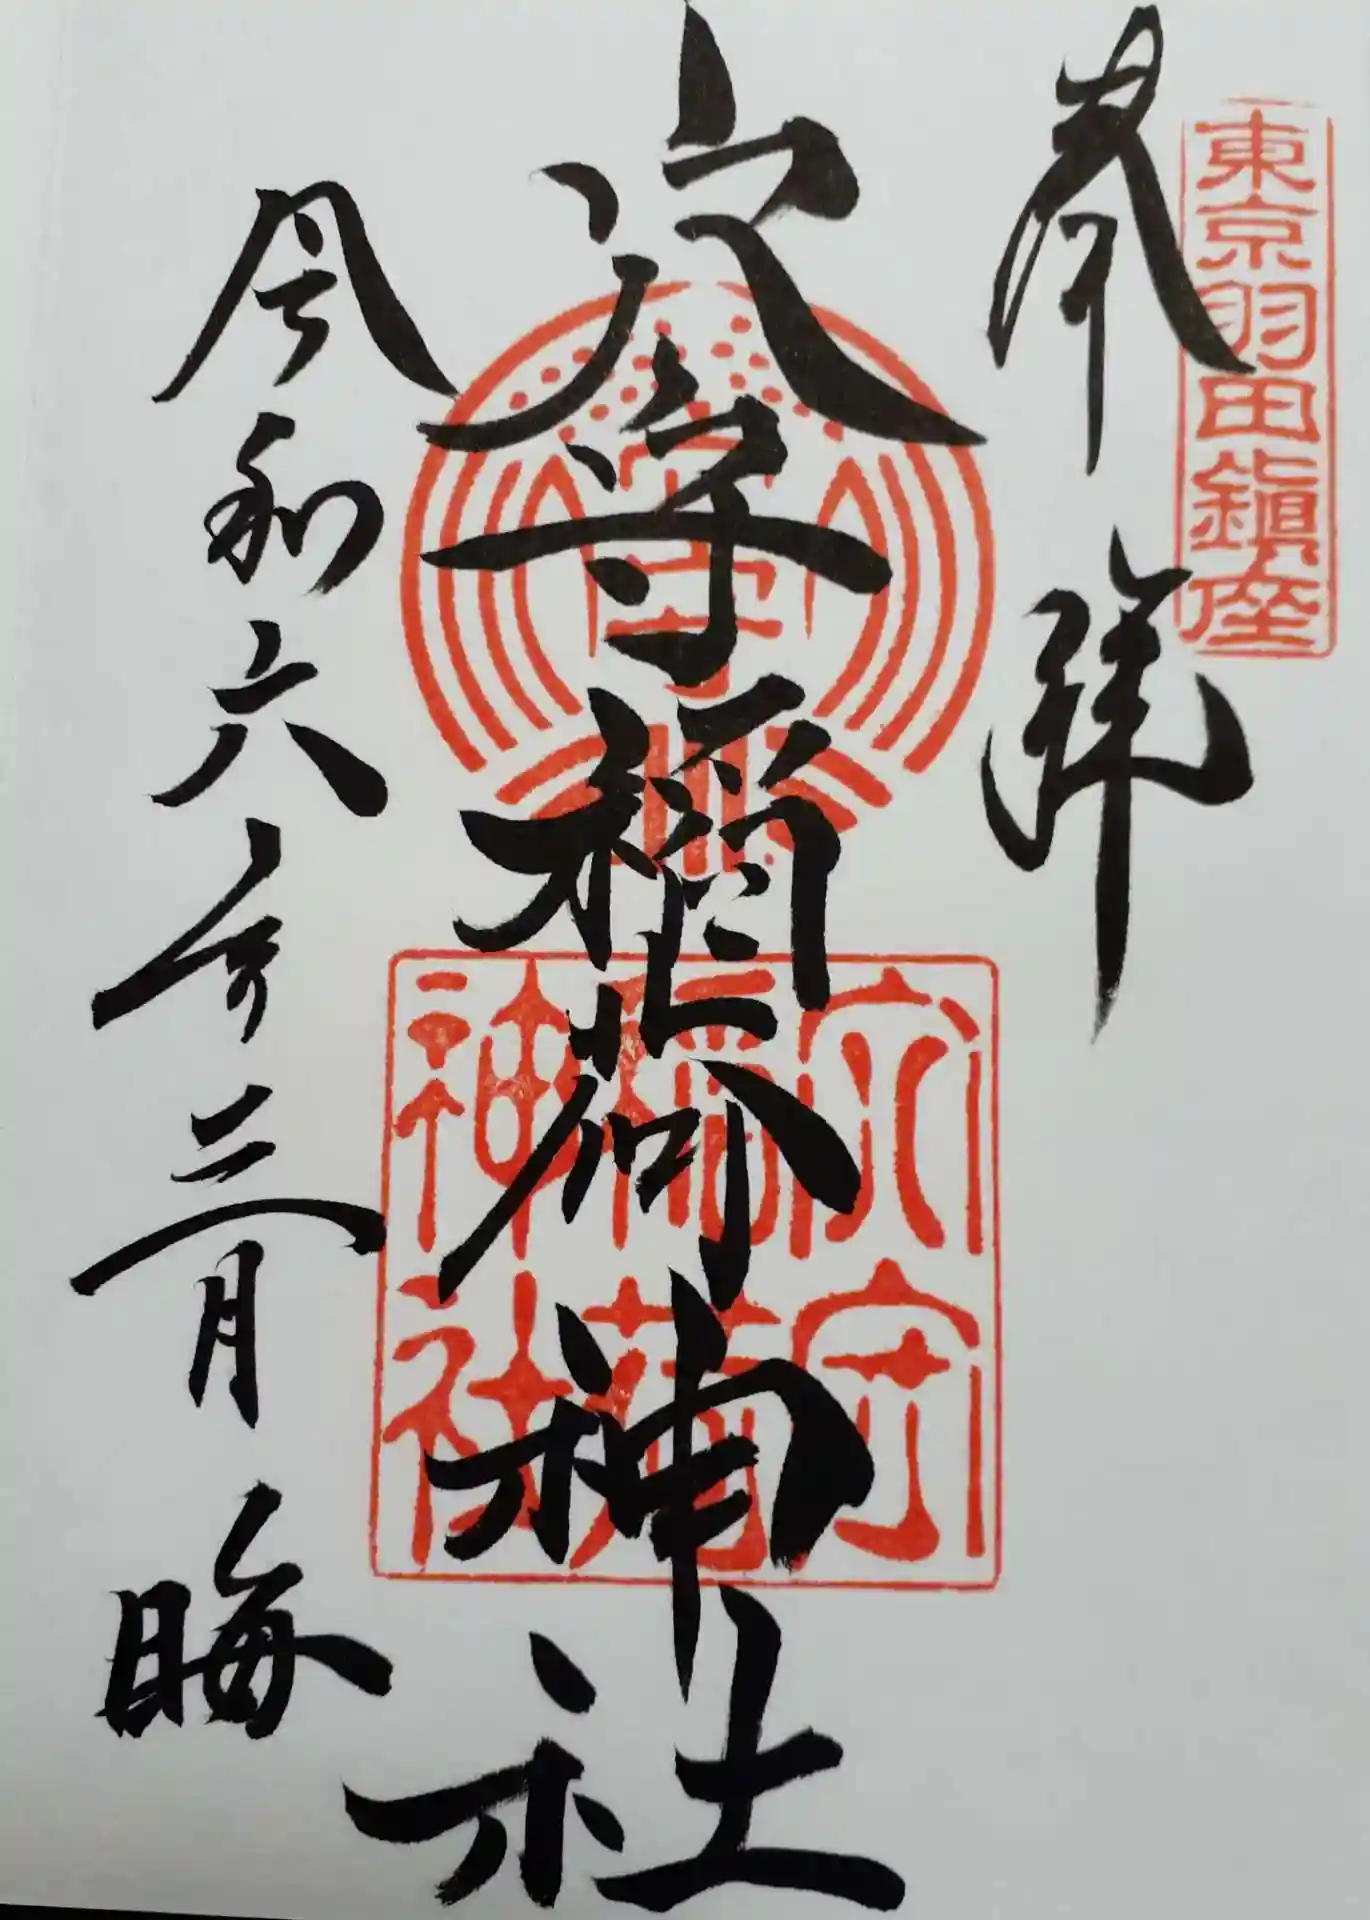 東京羽田鎮座
奉拝
穴守稲荷神社
穴守
稲荷
神社
令和六年三月晦